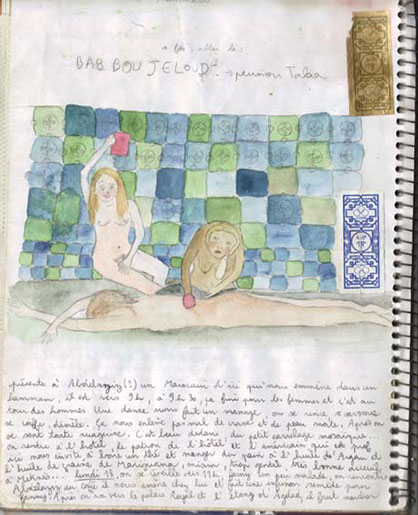 a fès, aller là :
BAB BOU JELOUD → pension Talaa
présente à Abdelaziz (?) un Marocain d'ici qui nous emmène dans un
hammam, il est vers 9h, à 9h30 ça finit pour les femmes et c'est au
tour des hommes. Une dame nous fait un massage, on se rince se savonne
se coiffe, démêle. Ça nous enlève pas mal de crasse et de peau morte. Après on
se sent toute nuageuse. C'est beau dedans, du petit carrelage mosaïque...
on rentre à l'hôtel le patron de l'hôtel et l'américain qui est juif
nous invite à boire un thé et manger du pain à l'huile d'Argan et
l'huile de graine de Marijuana, miam, trop gentils, très bonne
lundi 13, on se réveille vers 11h
Abdelaziz au café il nous emmène chez lui et fait une infusion
Jenny. Après on va vers le palais Royal et l'étang Agdal, il faut